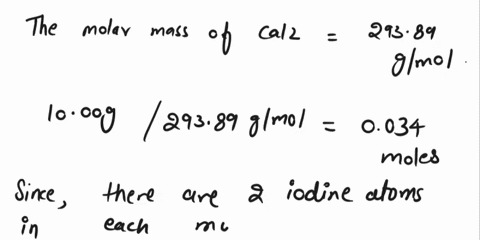 The molar mass of CaI2 = 293.89 g/mol.
10.00g / 293.89 g/mol = 0.034 moles
Since, there are 2 iodine atoms
in each